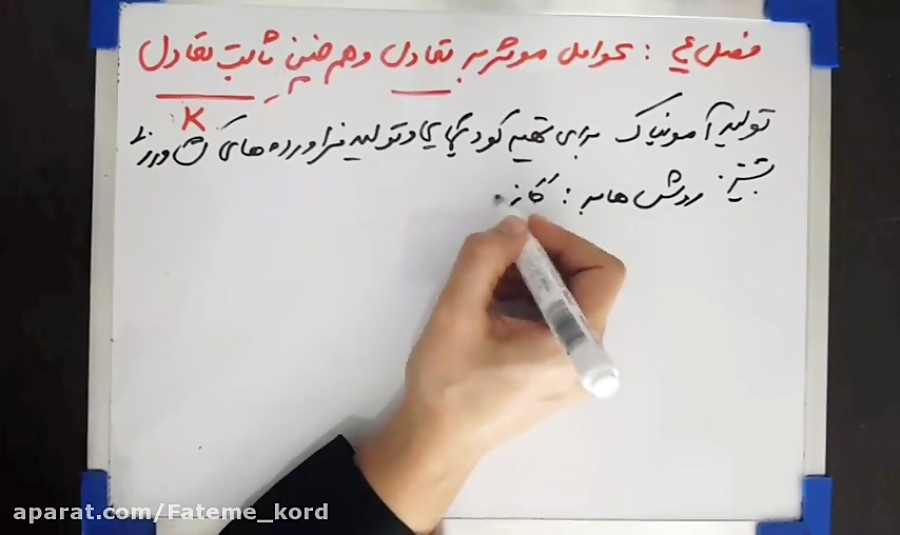 فصل ۴ : عوامل موثر بر تعادل و هم چنین ثابت تعادل
K
تولید آمونیاک برای تهیه کود شیمیایی و تولید فراورده های کشاورزی
بیشتر.
روش هابر : گاز
aparat.com/Fateme_kord